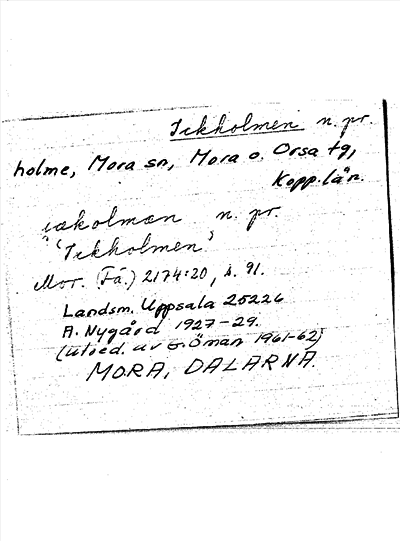 Ickholmen n. pr.
holme, Mora sn, Mora o. Orsa tg,
Kopp. län.
n. pr.
"Ickholmen"
Mor. (Fä.) 2174:20, s. 91.
Landsm. Uppsala 25226
A. Nygård 1927-29.
(utred. av E. Öman 1961-62)
MORA, DALARNA.